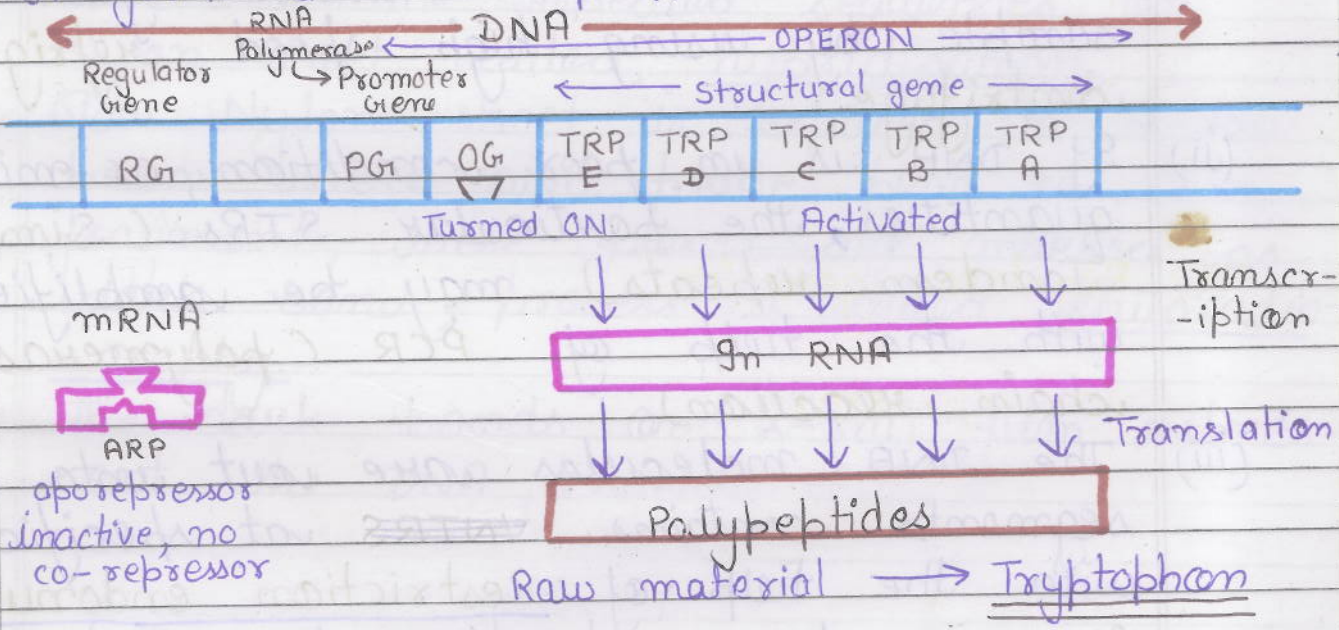 RNA
DNA
Polymerase
OPERON
Regulator
Gene
Promoter
Gene
Structural gene
RG
PG
OG
TRP
E
TRP
D
TRP
C
TRP
B
TRP
A
Turned ON
Activated
Transcr-
-iption
mRNA
In RNA
ARP
Translation
aporepressor
inactive, no
co-repressor
Polypeptides
Raw material → Tryptophan